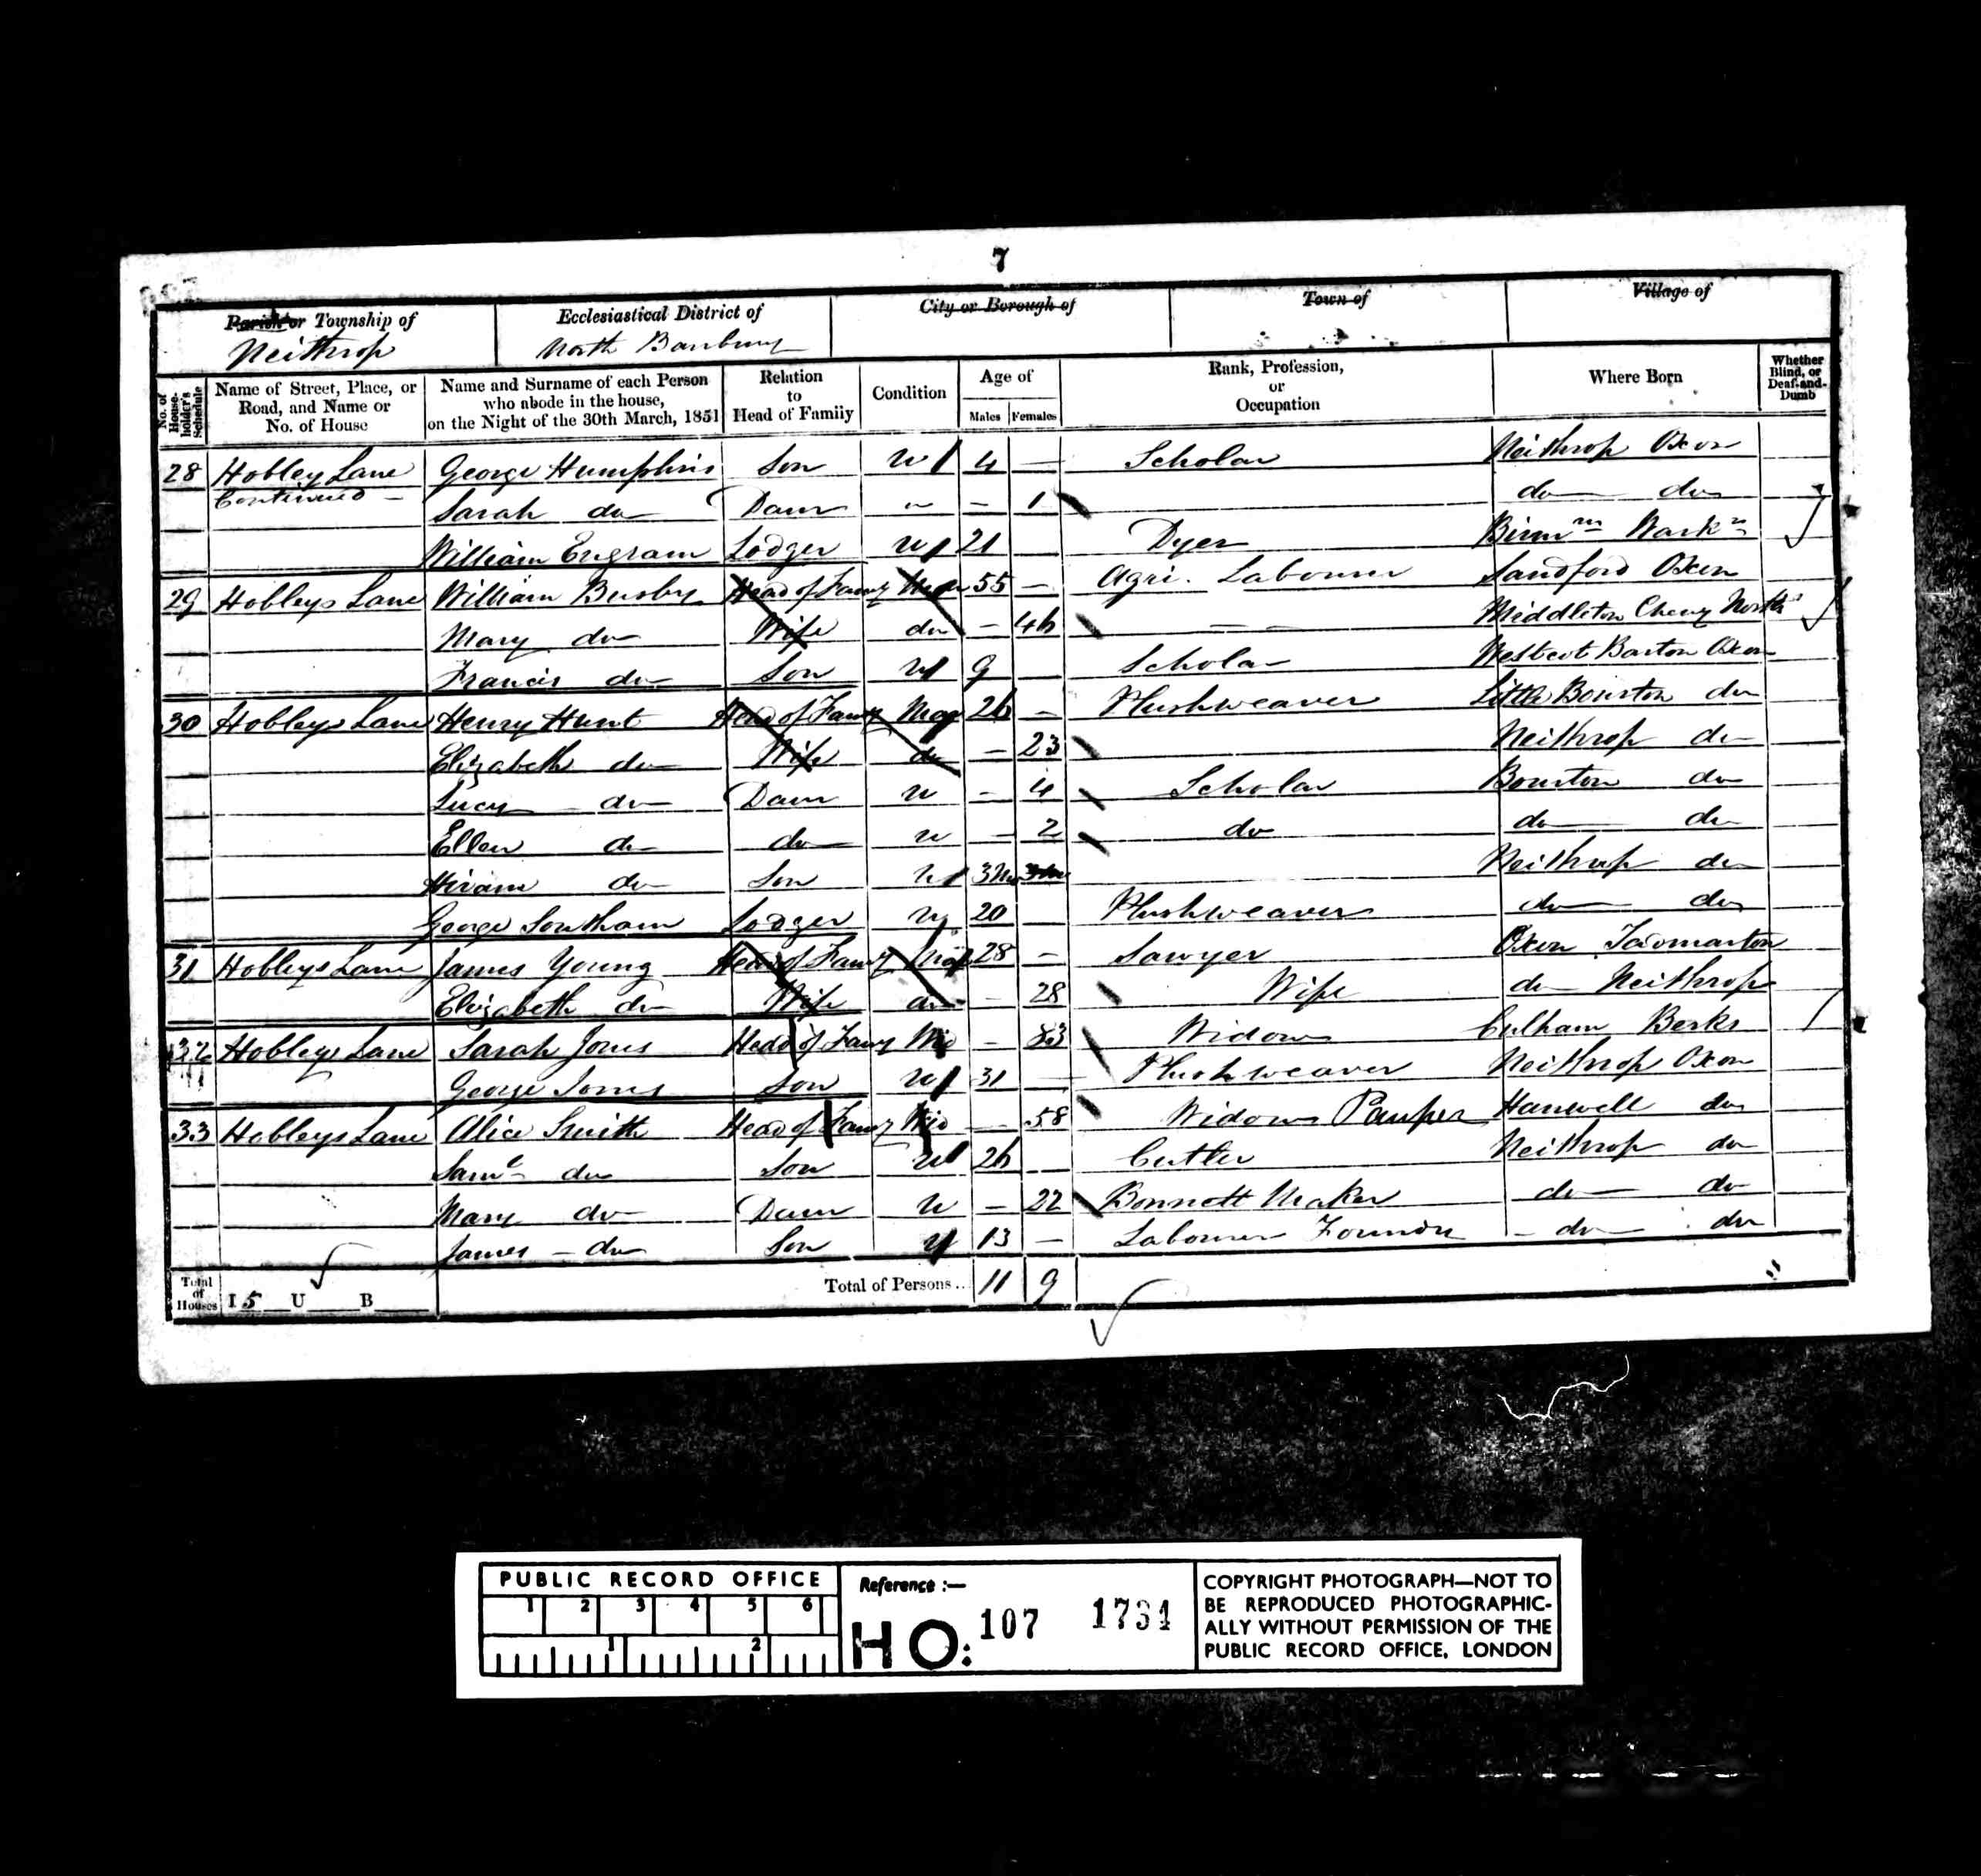 7
Parish or Township of Ecclesiastical District of City or Borough of Town of Village of
Neithrop North Banbury
No. of House-holder's Schedule Name of Street, Place, or Road, and Name or No. of House Name and Surname of each Person who abode in the house, on the Night of the 30th March, 1851 Relation to Head of Family Condition Age of Males Females Rank, Profession, or Occupation Where Born Whether Blind, or Deaf-and-Dumb
28 Hobley Lane George Humphris Son U 4 — Scholar Neithrop Oxon
Continued — Sarah do Daur " – 1 do do
William Engram Lodger U 21 Dyer Birmm Wark
29 Hobleys Lane William Busby Head of Famy Mar 55 – Agri. Labourer Sandford Oxon
Mary do Wife do – 46 Middleton Cheny North
Francis do Son U 9 Scholar Westcot Barton Oxon
30 Hobleys Lane Henry Hunt Head of Famy Mar 26 – Plushweaver Little Bourton do
Elizabeth do Wife do – 23 Neithrop do
Lucy do Daur U – 4 Scholar Bourton do
Ellen do do U – 2 do do do
Hiram do Son U 3Mo Neithrop do
George Southam Lodger U 20 Plushweaver do do
31 Hobleys Lane James Young Head of Famy Mar 28 – Sawyer Oxon Tadmarton
Elizabeth do Wife do – 28 Wife do Neithrop
32 Hobleys Lane Sarah Jones Head of Famy Wid – 83 Widow Culham Berks
George Jones Son U 31 — Plushweaver Neithrop Oxon
33 Hobleys Lane Alice Smith Head of Famy Wid — 58 Widow Pauper Hanwell do
Saml do Son U 26 Cutler Neithrop do
Mary do Daur U – 22 Bonnett Maker do do
James – do Son U 13 – Labourer Foundry – do do
Total of Houses I 5 U B Total of Persons.. 11 9
PUBLIC RECORD OFFICE
1 2 3 4 5 6
1 2
Reference :—
HO: 107 1734
COPYRIGHT PHOTOGRAPH—NOT TO
BE REPRODUCED PHOTOGRAPHIC-
ALLY WITHOUT PERMISSION OF THE
PUBLIC RECORD OFFICE, LONDON